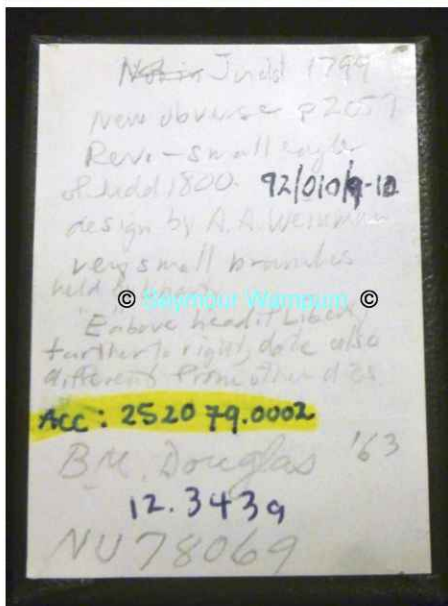 Judd 1799
New obverse p2057
Rev. - small eagle
of Judd 1800. 92/010/9-10
design by A. A. Weinman
very small branches
held
© Seymour Wampum ©
E above head of Liberty
further to right, date also
different from other dies
Acc: 252079.0002
B.M. Douglas '63
12.343g
NU 78069